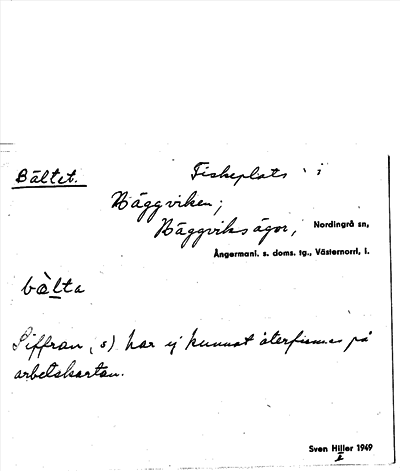 Bältet. Fiskeplats i
Häggviken;
Häggviks ägor, Nordingrå sn,
Ångermanl. s. doms. tg., Västernorrl, l.
bàlta
Siffran (s) har ej kunnat återfinnas på
arbetskartan.
Sven Hiller 1949